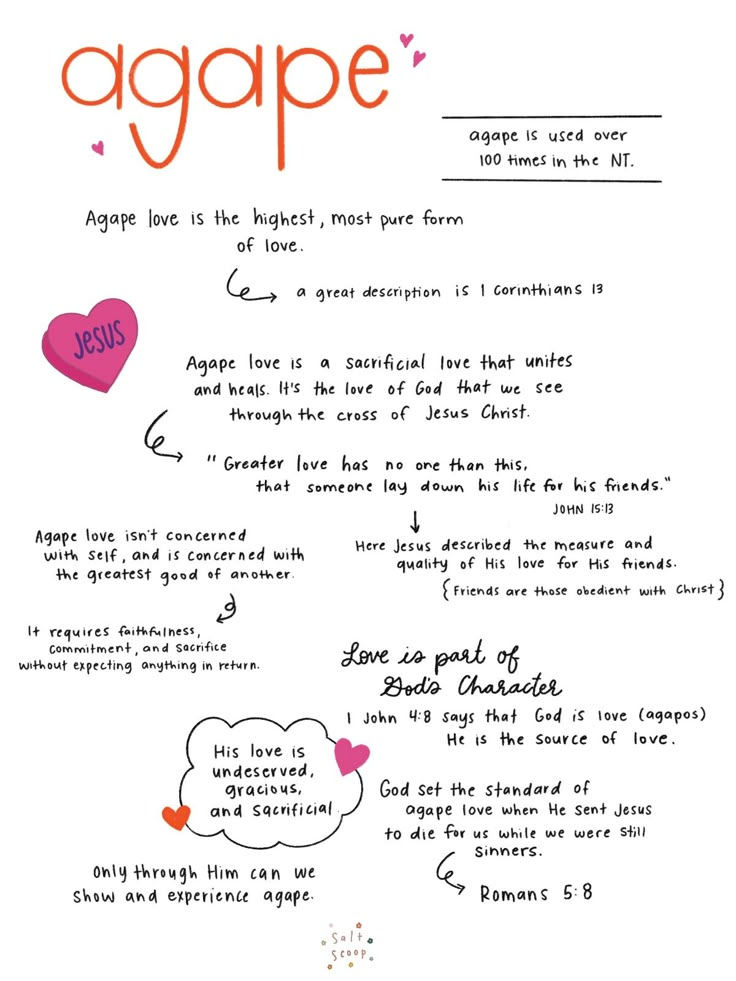 agape
agape is used over
100 times in the NT.
Agape love is the highest, most pure form
of love.
a great description is 1 Corinthians 13
Jesus
Agape love is a sacrificial love that unites
and heals. It's the love of God that we see
through the cross of Jesus Christ.
" Greater love has no one than this,
that someone lay down his life for his friends."
JOHN 15:13
Here Jesus described the measure and
quality of His love for His friends.
{Friends are those obedient with Christ}
Agape love isn't concerned
with self, and is concerned with
the greatest good of another.
It requires faithfulness,
commitment, and sacrifice
without expecting anything in return.
Love is part of
God's Character
1 John 4:8 says that God is love (agapos)
He is the source of love.
His love is
undeserved,
gracious,
and sacrificial.
God set the standard of
agape love when He sent Jesus
to die for us while we were still
sinners.
Romans 5:8
Only through Him can we
show and experience agape.
Salt
Scoop